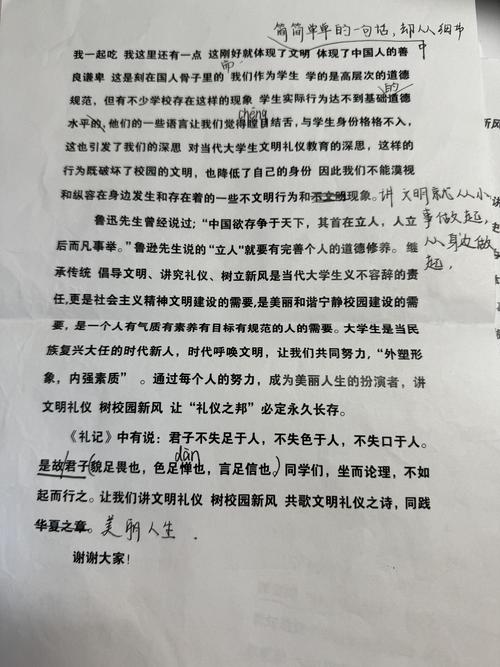 简简单单的一句话，却从细节
中
我一起吃 我这里还有一点 这刚好就体现了文明 体现了中国人的善
而
良谦卑 这是刻在国人骨子里的 我们作为学生 学的是高层次的道德
规范，但有不少学校存在这样的现象 学生实际行为达不到基础道德
的
chēng
水平的，他们的一些语言让我们觉得瞠目结舌，与学生身份格格不入，
这也引发了我们的深思 对当代大学生文明礼仪教育的深思，这样的
行为既破坏了校园的文明，也降低了自己的身份 因此我们不能漠视
和纵容在身边发生和存在着的一些不文明行为和不文明现象。讲文明就从小
鲁迅先生曾经说过；“中国欲存争于天下，其首在立人，人立
事做起，
后而凡事举。”鲁逊先生说的“立人”就要有完善个人的道德修养。 继
从身边做
起，
承传统 倡导文明、讲究礼仪、树立新风是当代大学生义不容辞的责
任,更是社会主义精神文明建设的需要,是美丽和谐宁静校园建设的需
要，是一个人有气质有素养有目标有规范的人的需要。大学生是当民
族复兴大任的时代新人，时代呼唤文明，让我们共同努力，“外塑形
象，内强素质” 。通过每个人的努力，成为美丽人生的扮演者，讲
文明礼仪 树校园新风 让“礼仪之邦”必定永久长存。
《礼记》中有说：君子不失足于人，不失色于人，不失口于人。
dàn
是故君子(貌足畏也，色足惮也，言足信也。)同学们，坐而论理，不如
起而行之。让我们讲文明礼仪 树校园新风 共歌文明礼仪之诗，同践
华夏之章。美丽人生.
谢谢大家！